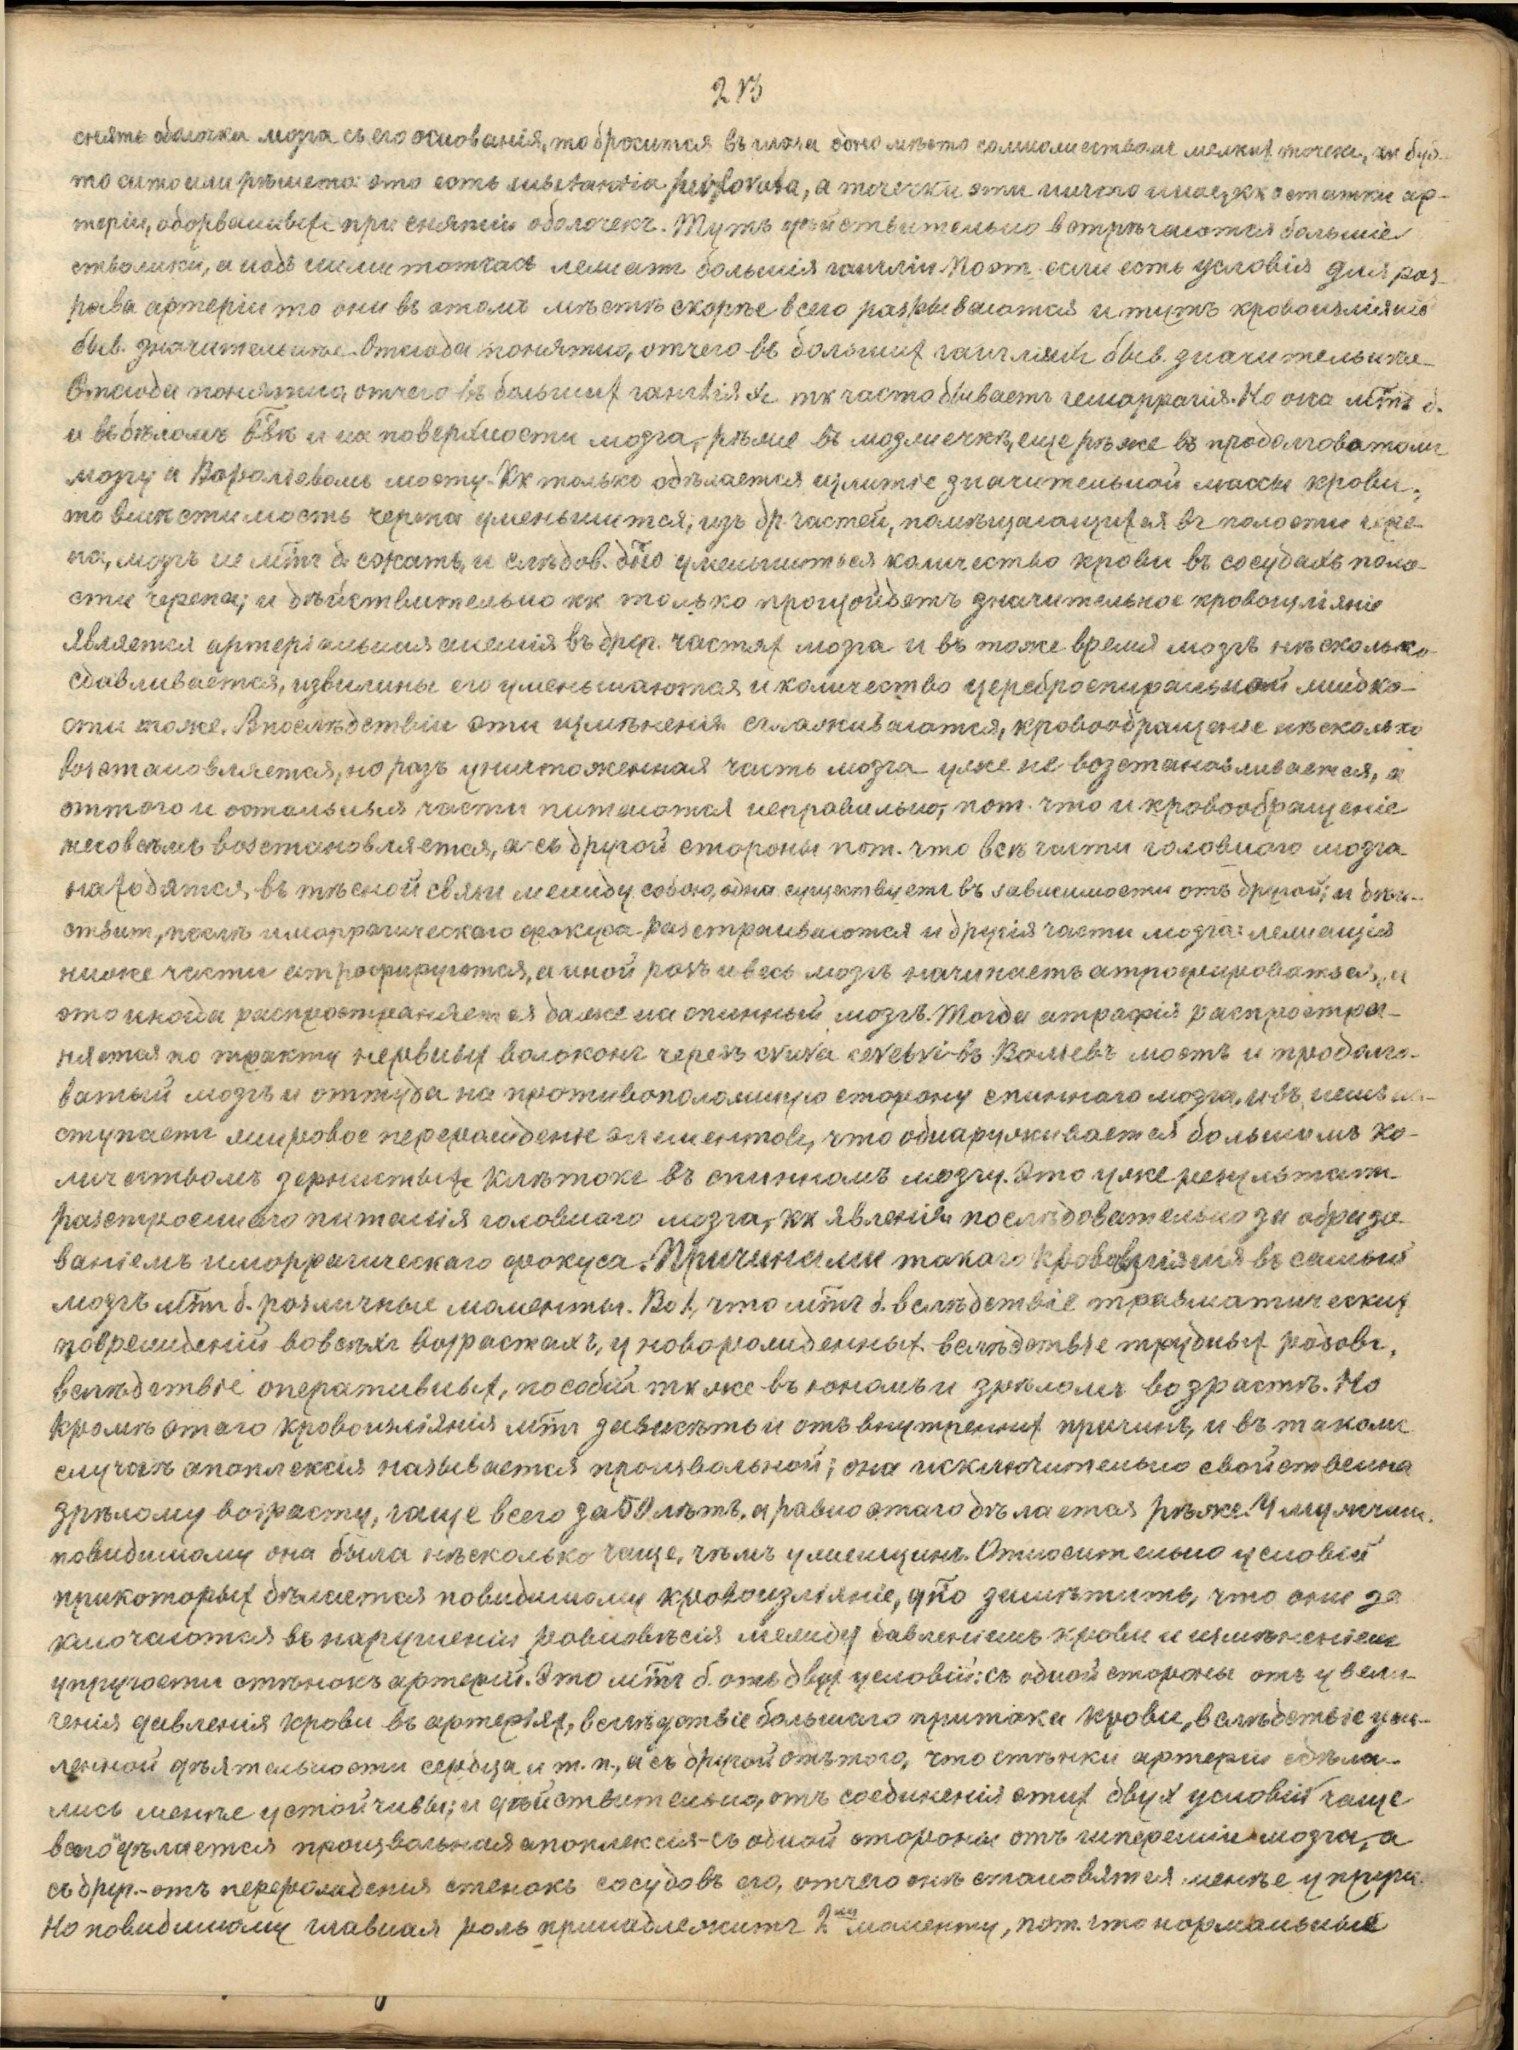 213
снять оболочки мозга съ его основанія, то бросится въ глаза одно мѣсто со множествомъ мелких точекъ, кк буд-
то сито или рѣшето: это есть substantia perforata, а точечки эти ничто иное, кк остатки ар-
терій, оборванныхъ при снятіи оболочекъ. Тутъ дѣйствительно встрѣчаются большіе
стволики, а надъ ними тотчасъ лежатъ большія гангліи. Поэт. если есть условія для раз-
рыва артеріи то они въ этомъ мѣстѣ скорѣе всего разрываются и тутъ кровоизліяніе
быв. значительнѣе. Отсюда понятно, отчего въ больших гангліяхъ быв. значительнѣе
Отсюда понятно, отчего въ больших гангліяхъ тк часто бываетъ геморрагія. Но она мтъ б.
и въ бѣломъ и на поверхности мозга, рѣже въ мозжечкѣ, еще рѣже въ продолговатомъ
мозгу и Вароліевомъ мосту. Кк только сдѣлается излитіе значительной массы крови,
то вмѣстимость черепа уменьшится; изъ др. частей, помѣщающихся въ полости чере-
па, мозгъ не мтъ б. сжатъ, и слѣдов. уменьшиться количество крови въ сосудахъ поло-
сти черепа; и дѣйствительно кк только произойдетъ значительное кровоизліяніе
является артеріальная анемія въ друг. частях мозга и въ тоже время мозгъ нѣсколько
сдавливается, извилины его уменьшаются и количество цереброспиральной жидко-
сти тоже. Впослѣдствіи эти измѣненія сглаживаются, кровообращеніе нѣсколько
возстановляется, но разъ уничтоженная часть мозга уже не возстановливается, а
оттого и остальныя части питаются неправильно, пот. что и кровообращеніе
несовсѣмъ возстановляется, а съ другой стороны пот. что всѣ части головного мозга
находятся въ тѣсной связи между собою, одна существуетъ въ зависимости отъ другой; и дѣй-
ствит., послѣ гморрагическаго фокуса разстраиваются и другія части мозга: лежащія
ниже части атрофируются, а иной разъ и весь мозгъ начинаетъ атрофироваться, и
это иногда распространяется даже на спинный мозгъ. Тогда атрофія распростра-
няется по тракту нервных волоконъ черезъ crura cerebri въ Воліевъ мостъ и продолго-
ватый мозгъ и оттуда на противоположную сторону спинного мозга,
ступаетъ жировое перерожденіе элементовъ, что обнаруживается большимъ ко-
личествомъ зернистыхъ клѣтокъ въ спинномъ мозгу. Это уже результатъ
разстроеннаго питанія головного мозга, кк явленія послѣдовательно за образо-
ваніемъ гморрагическаго фокуса. Причинами такого кровоизліянія въ самый
мозгъ мтъ б. различные моменты. Во 1, что мтъ б. вслѣдствіе травматических
поврежденій во всѣхъ возрастахъ, у новорожденных вслѣдствіе трудных родовъ,
вслѣдствіе оперативных пособій тк же въ юномъ и зрѣломъ возрастѣ. Но
кромѣ этого кровоизліянія мтъ зависѣть и отъ внутренних причинъ, и въ такомъ
случаѣ апоплексія называется произвольной; она исключительно свойственна
зрѣлому возрасту, чаще всего за 50 лѣтъ, а равно этаго дѣлается рѣже. У мужчин.
повидимому она была нѣсколько чаще, чѣмъ у женщинъ. Относительно условій
при которых дѣлается повидимому кровоизліяніе, замѣтить, что они за
ключаются въ нарушеніи равновѣсія между давленіемъ крови и измѣненіемъ
упругости стѣнокъ артерій. Это мтъ б. отъ двух условій: съ одной стороны отъ увели-
ченія давленія крови въ артеріях, вслѣдствіе большаго притока крови, вслѣдствіе уси-
ленной дѣятельности сердца и т. п., а съ другой отъ того, что стѣнки артеріи сдѣла-
лись менѣе устойчивы; и дѣйствительно, отъ соединенія этих двух условій чаще
всего дѣлается произвольная апоплексія - съ одной стороны отъ гипереміи мозга, а
съ друг. - отъ перерожденія стенокъ сосудовъ его, отчего онѣ становятся менѣе упруги.
Но повидимому главная роль принадлежитъ 2му моменту, пот. что нормальные